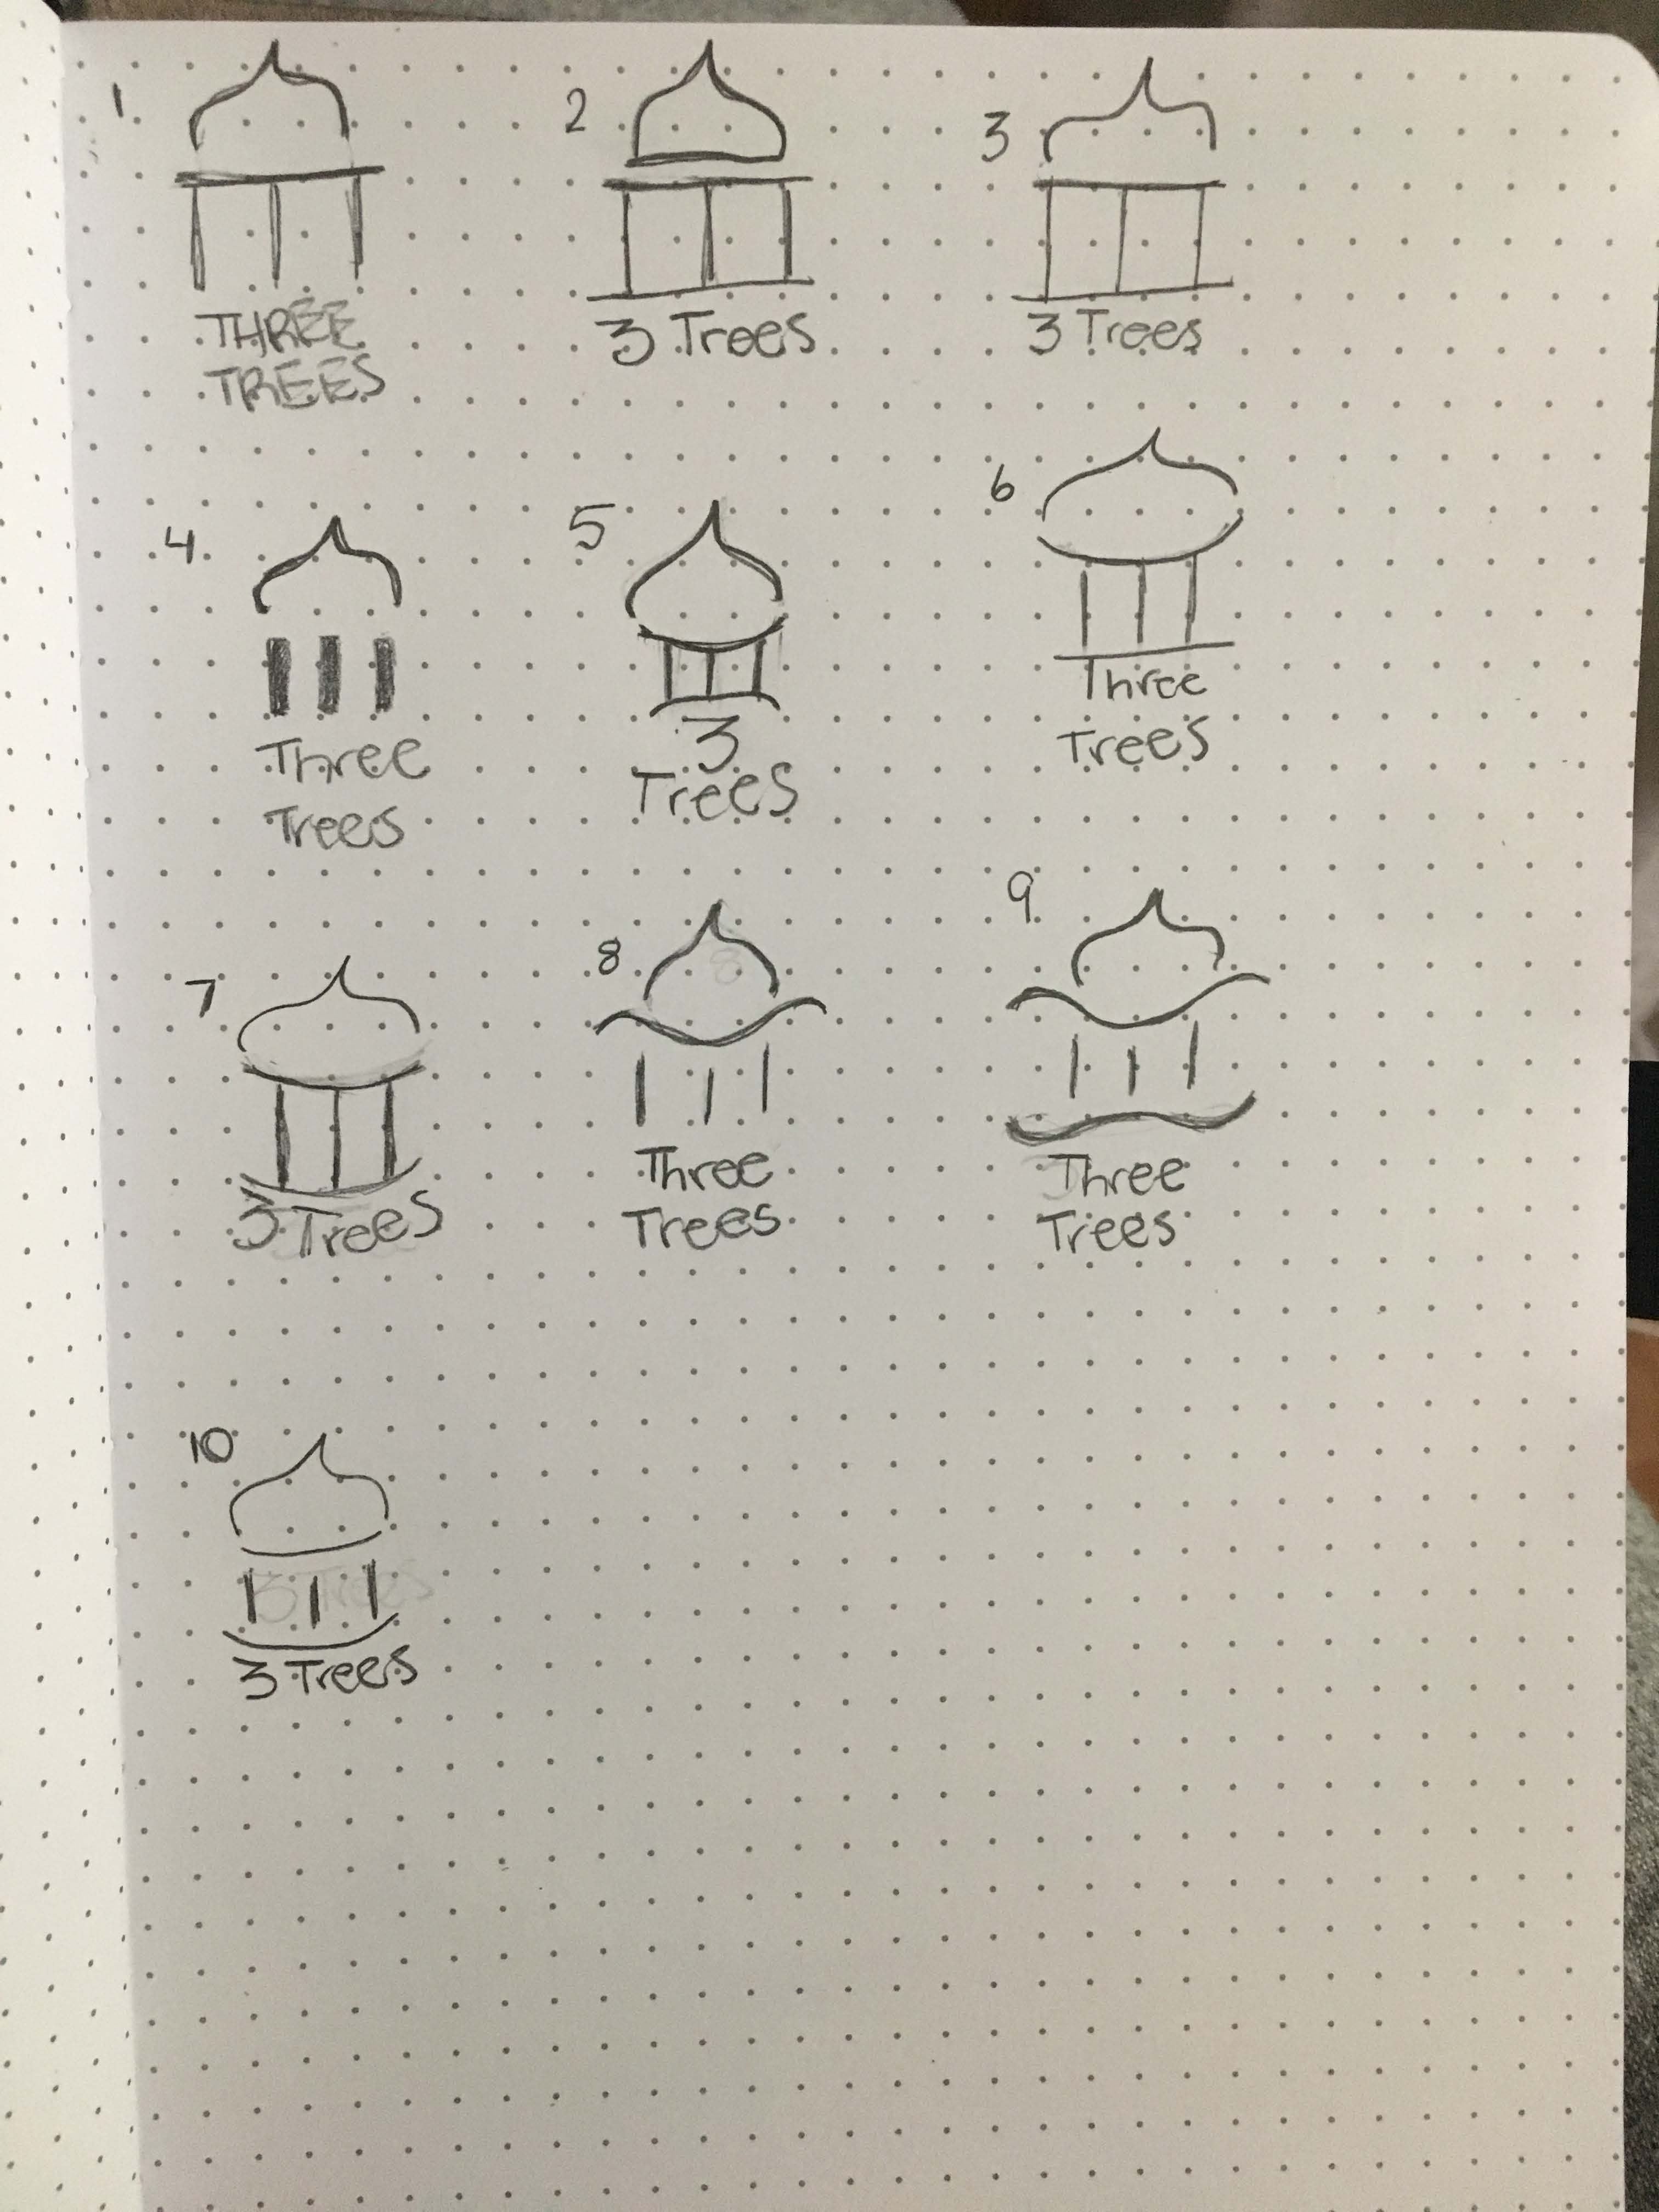 1
THREE
TREES
2
3 Trees
3
3 Trees
4
Three
Trees
5
3
Trees
6
Three
Trees
7
3 Trees
8
Three
Trees
9
Three
Trees
10
3 Trees
3 Trees